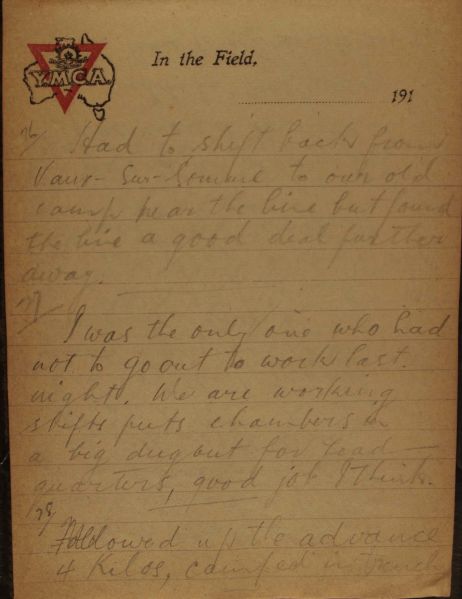 Y.M.C.A.
In the Field,
191
26/ Had to shift back from
Vaux-Sur-Somme to our old
camp near the line but found
the line a good deal further
away.
27/
I was the only one who had
not to go out to work last
night. We are working
shifts puts chambers in
a big dugout for Head-
quarters, good job I think.
28/
Followed up the advance
4 Kilos, camped in trench